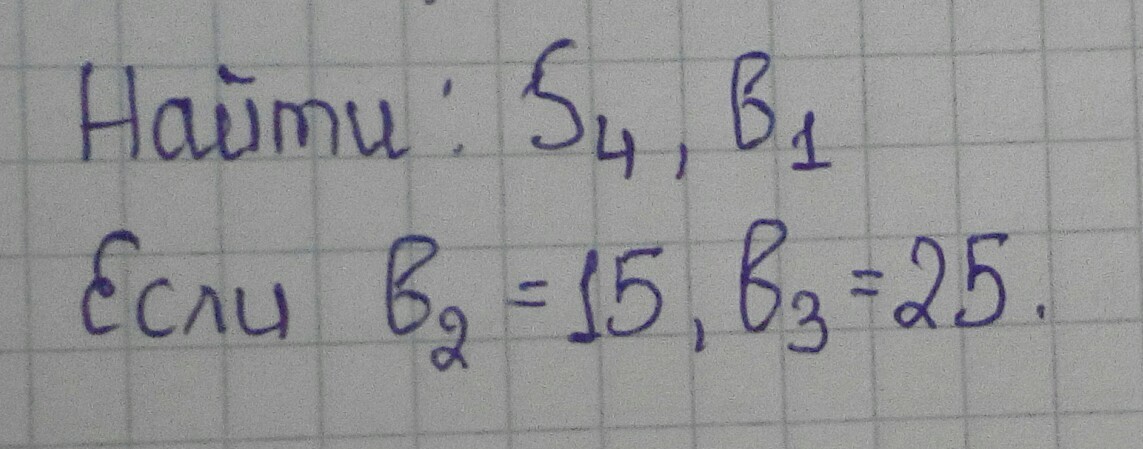 Найти: S₄, в₁
Если в₂ = 15, в₃ = 25.